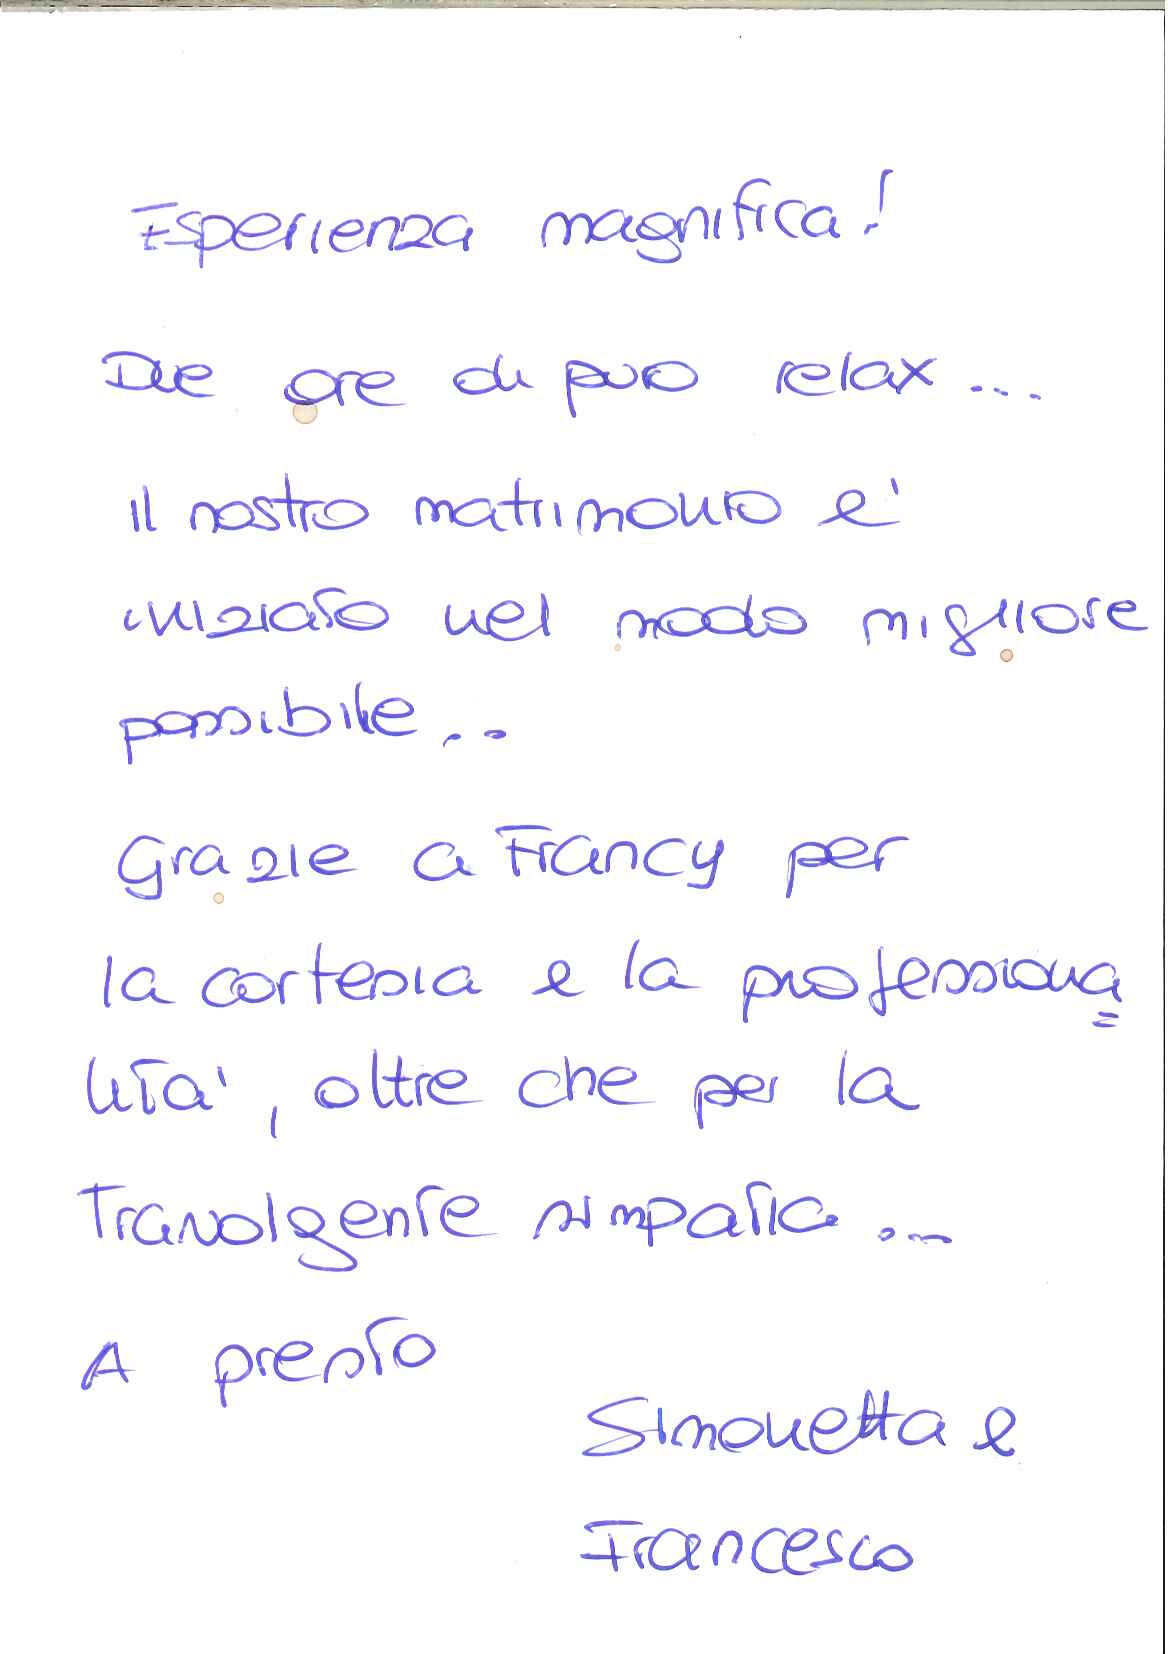 Esperienza magnifica!
Due ore di puro relax ...
il nostro matrimonio e'
iniziato nel modo migliore
possibile...
Grazie a Francy per
la cortesia e la professiona=
lita', oltre che per la
Travolgente simpatia ...
A presto
Simonetta e
Francesco